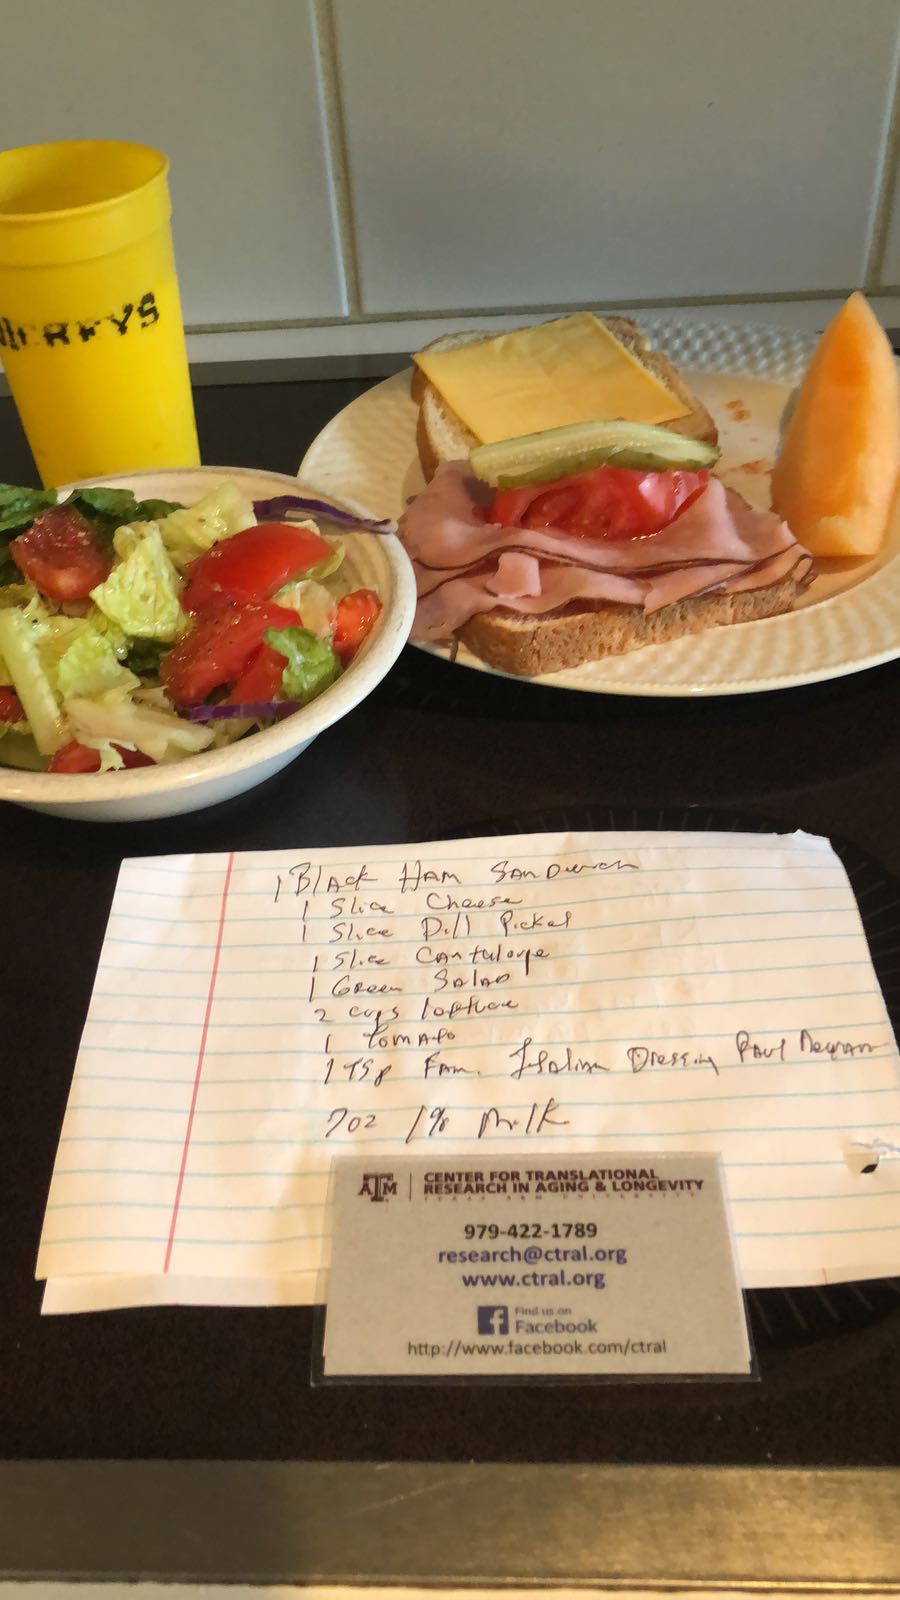 1 Black Ham Sandwich
1 Slice Cheese
1 Slice Dill Pickel
1 Slice Cantulope
1 Green Salad
2 cups lettuce
1 Tomato
1 Tsp Fam. Italian Dressing Paul Newman
7oz 1% Milk
ATM
CENTER FOR TRANSLATIONAL
RESEARCH IN AGING & LONGEVITY
TEXAS A&M UNIVERSITY
979-422-1789
research@ctral.org
www.ctral.org
Find us on
Facebook
http://www.facebook.com/ctral